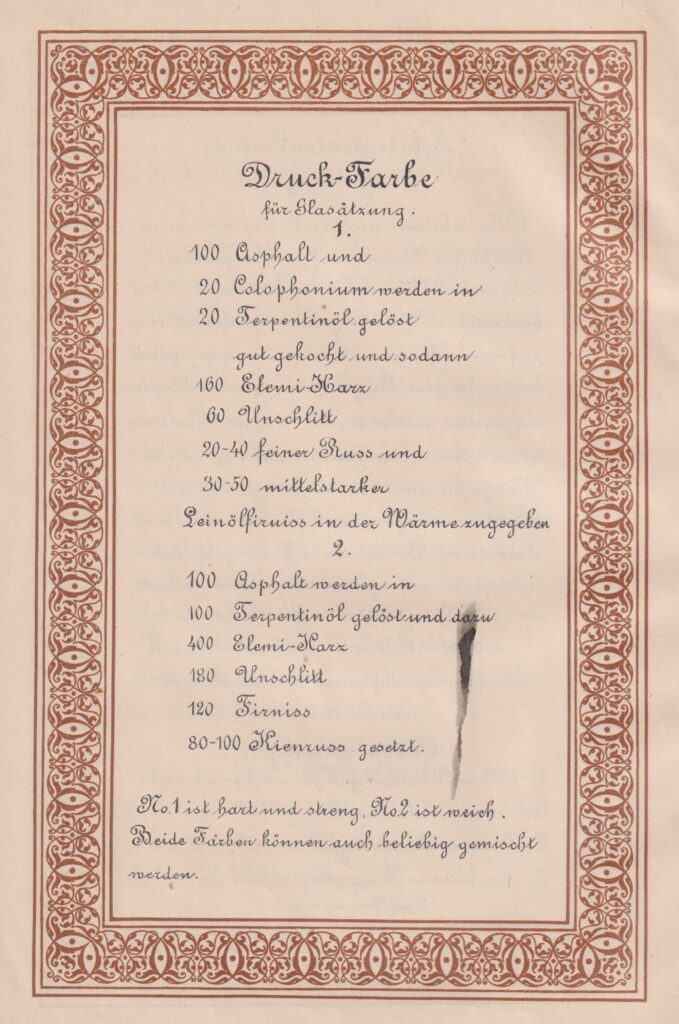 Druck-Farbe
für Glasätzung.
1.
100 Asphalt und
20 Colophonium werden in
20 Terpentinöl gelöst
gut gekocht und sodann
160 Elemi-Harz
60 Unschlitt
20-40 feiner Russ und
30-50 mittelstarker
Leinölfirniss in der Wärme zugegeben
2.
100 Asphalt werden in
100 Terpentinöl gelöst und dazu
400 Elemi-Harz
180 Unschlitt
120 Firniss
80-100 Kienruss gesetzt.
No. 1 ist hart und streng, No. 2 ist weich.
Beide Farben können auch beliebig gemischt
werden.